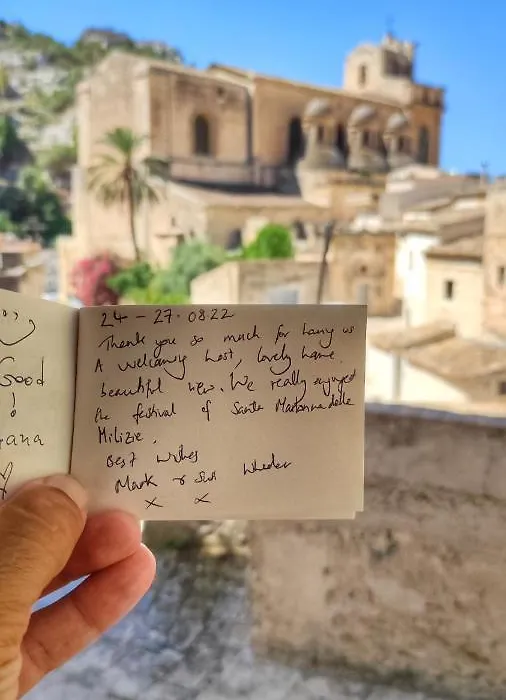 Good
!
24 - 27. 08.22
Thank you so much for having us
A welcoming host, lovely home,
beautiful view. We really enjoyed
the festival of Santa Madonna delle
Milizie.
Best wishes
Mark & Sue Wheeler
x x